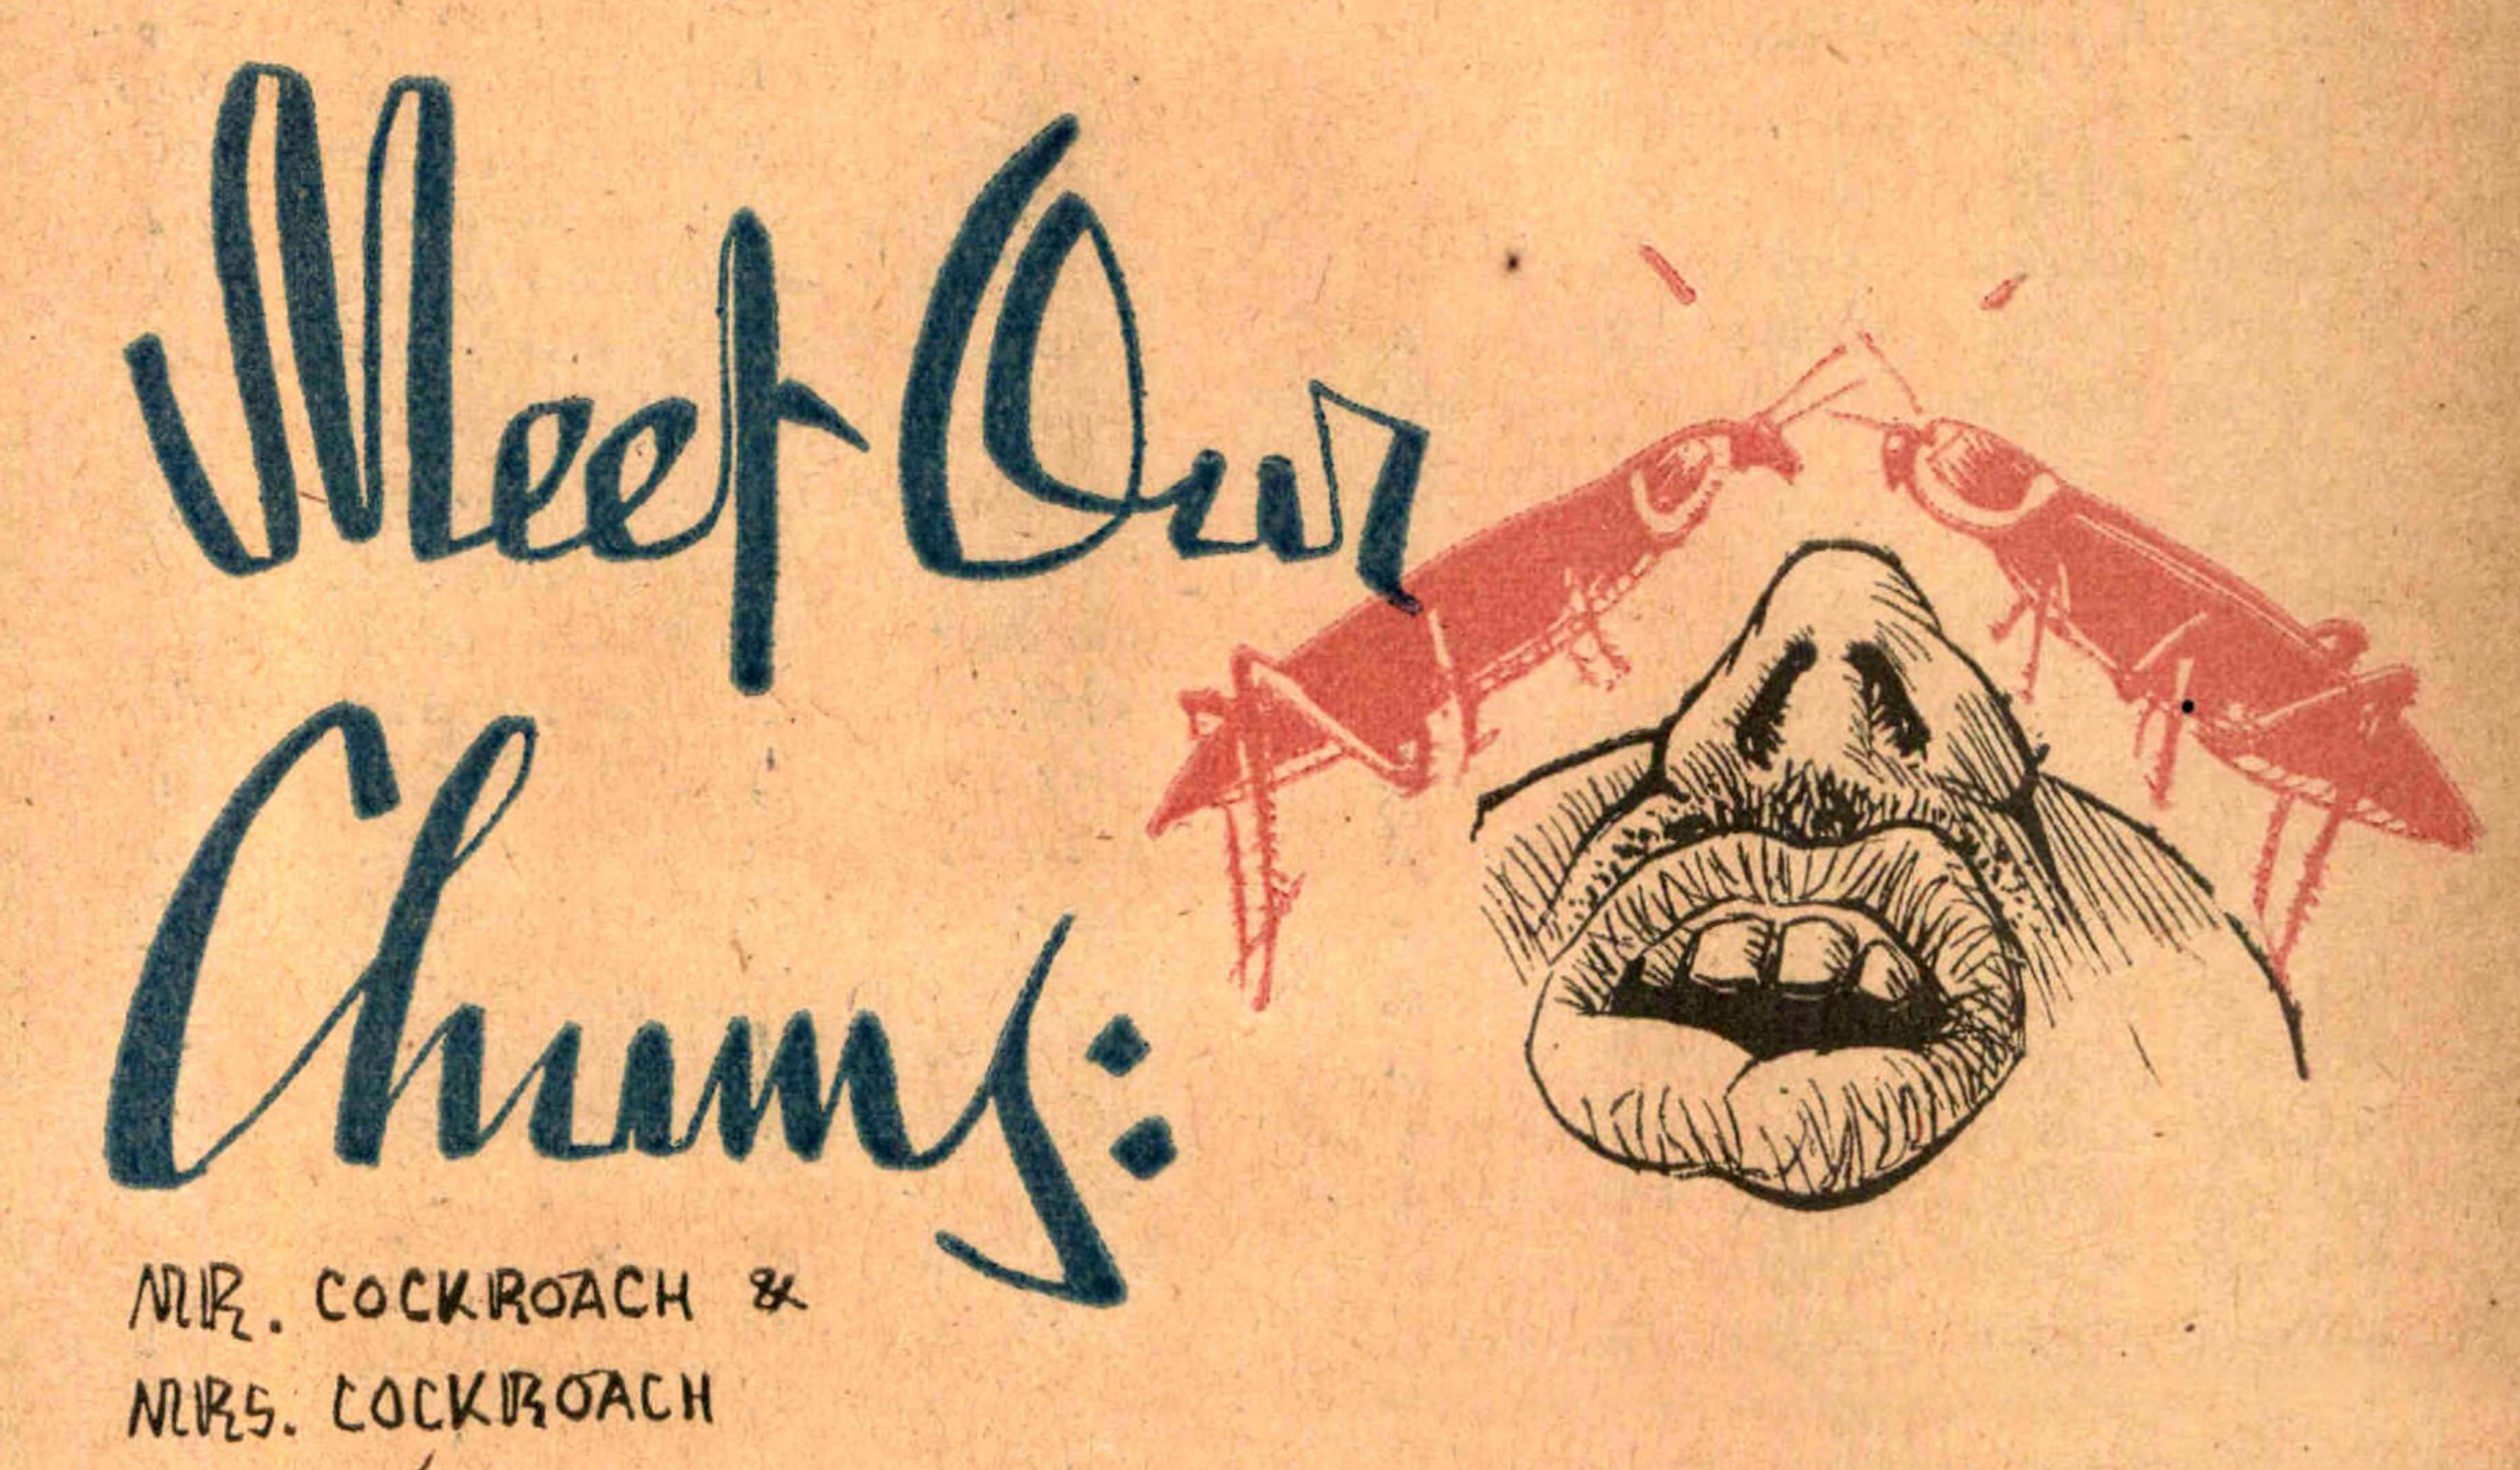 Meet Our
Chums:
MR. COCKROACH &
MRS. COCKROACH